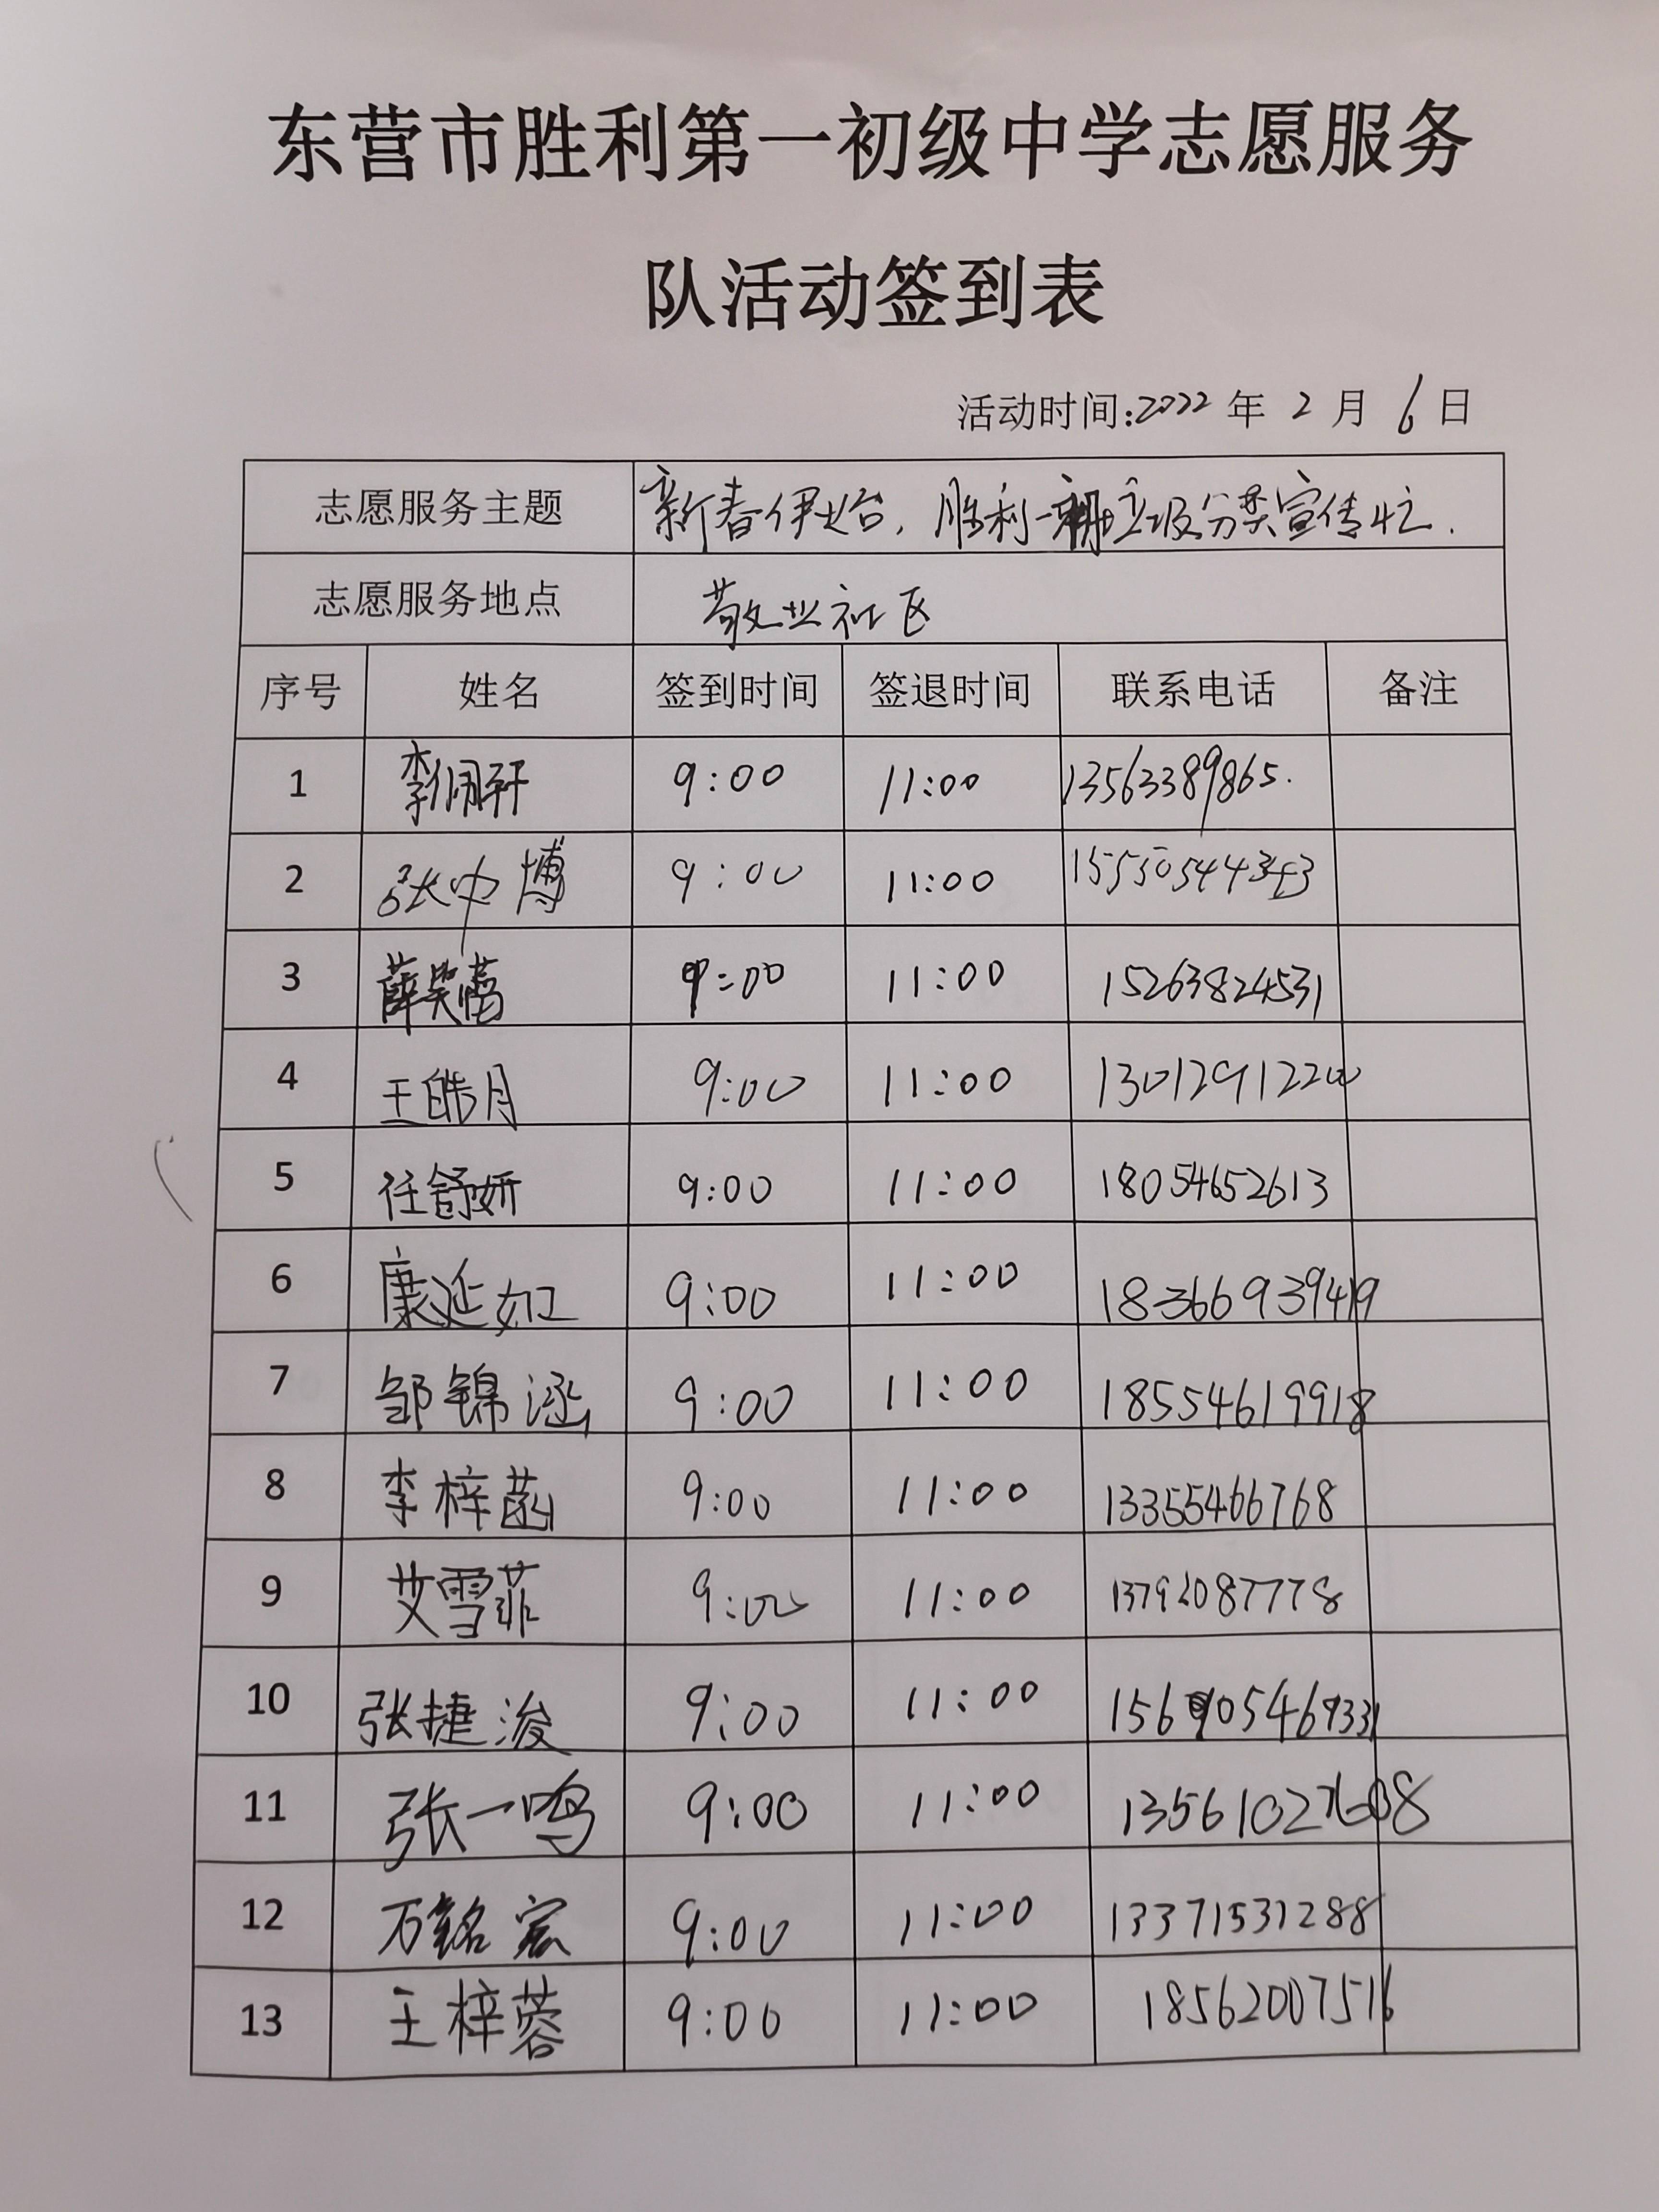 东营市胜利第一初级中学志愿服务
队活动签到表
活动时间:2022 年 2 月 6 日
志愿服务主题 新春伊始，胜利一初垃圾分类宣传忙.
志愿服务地点 敬业社区
序号 姓名 签到时间 签退时间 联系电话 备注
1 李佩轩 9:00 11:00 13563389865.
2 张中博 9:00 11:00
3 薛 9:00 11:00 15263824531
4 王皓月 9:00 11:00 13012912200
5 任舒妍 9:00 11:00 18054652613
6 康延如 9:00 11:00 18366939419
7 邹锦涵 9:00 11:00 18554619918
8 李梓菡 9:00 11:00 13355466768
9 艾雪菲 9:00 11:00 13792087778
10 张捷浚 9:00 11:00
11 张一鸣 9:00 11:00
12 万铭宸 9:00 11:00 13371531288
13 王梓蓉 9:00 11:00 18562007516